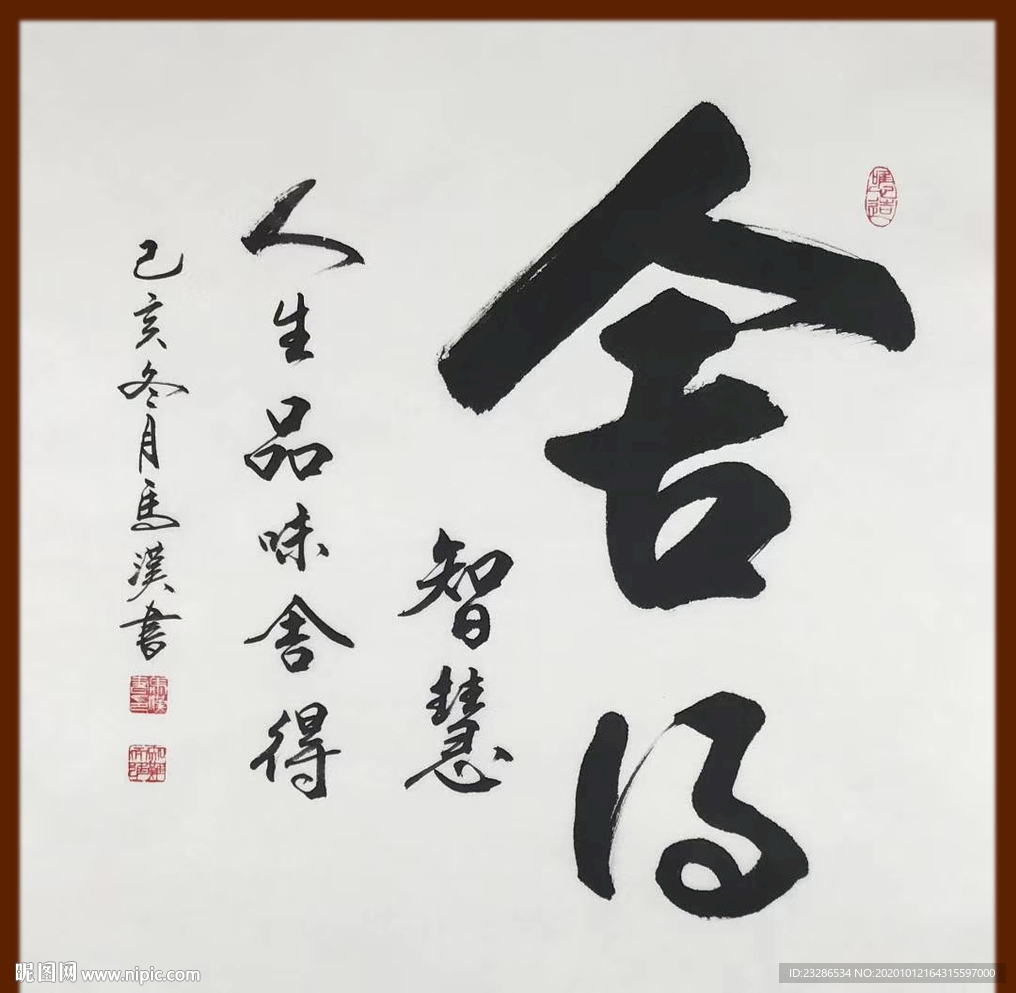 舍得
智慧
人生品味舍得
己亥冬月马汉书
昵图网 www.nipic.com
ID:23286534 NO:20201012164315597000